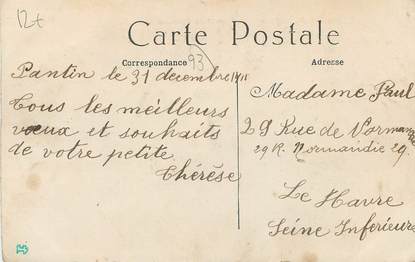 12+
Carte Postale
Correspondance
Adresse
93
Pantin le 31 decembre 1911
Tous les meilleurs
voeux et souhaits
de votre petite
Thérèse
Madame Paul
29 Rue de Normandie
29 R. Normandie 29.
Le Havre
Seine Inferieure